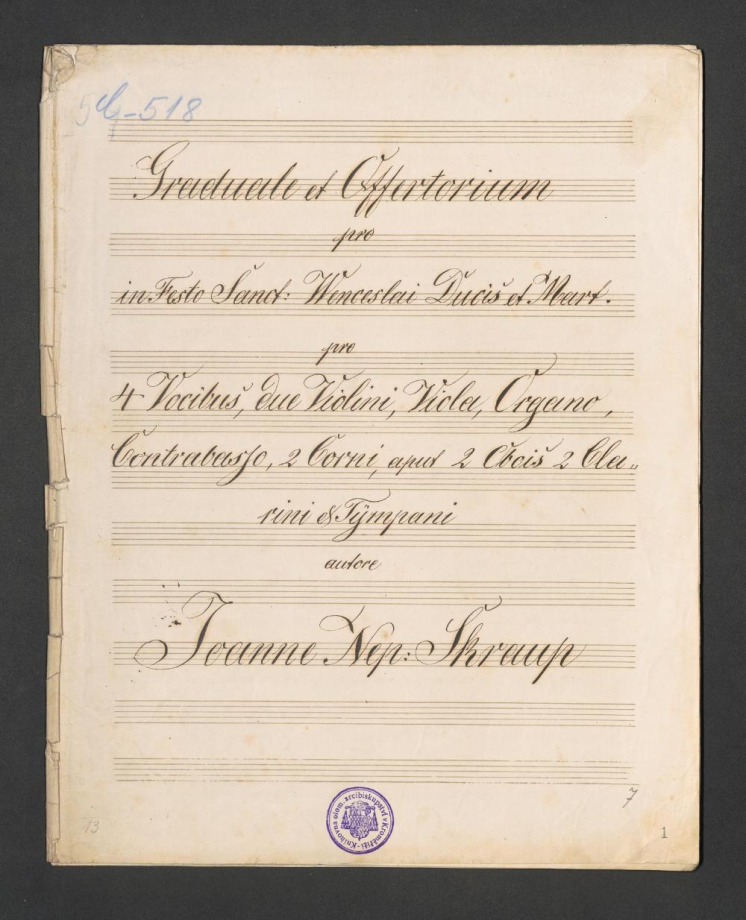 54-518
Graduale et Offertorium
pro
in Festo Sanct: Wenceslai Ducis et Mart.
pro
4 Vocibus, due Violini, Viola, Organo,
Contrabasso, 2 Corni, apud 2 Obois 2 Cla„
rini et Tÿmpani
autore
Joanne Nep: Skraup
Knihovna olom. arcibiskupství v Kroměříži
7
13
1